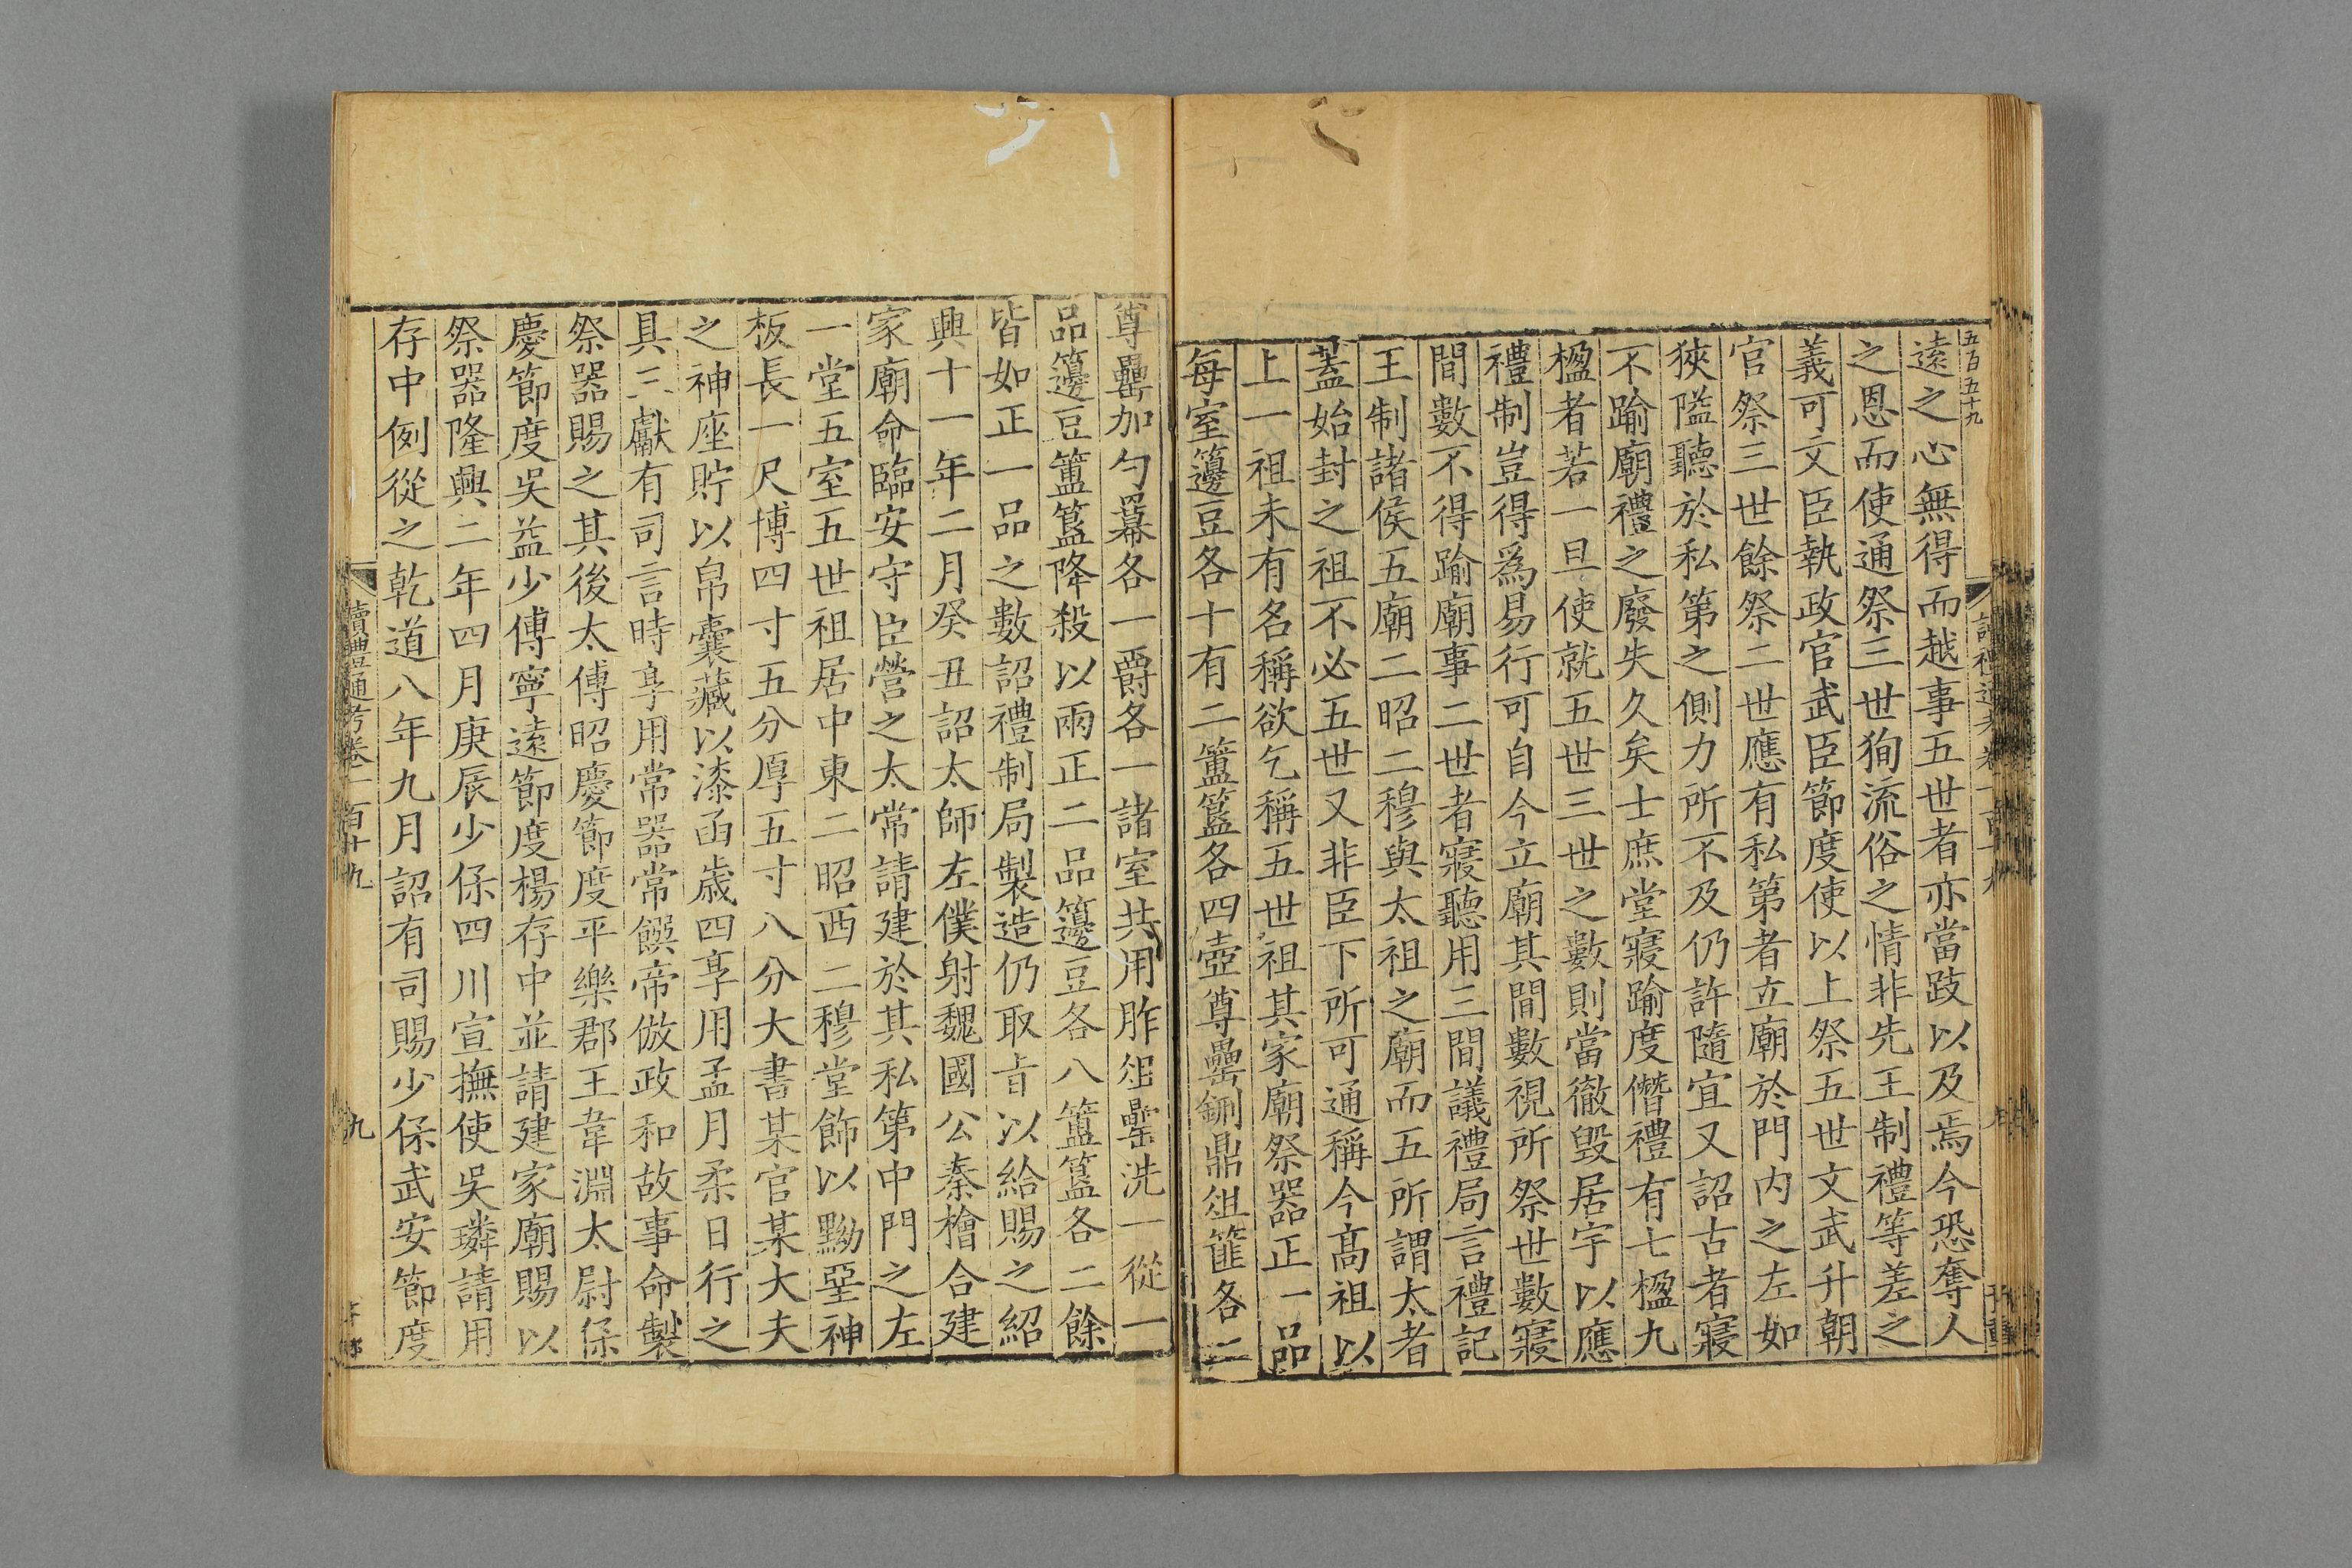 五百五十九
遠之心無得而越事五世者亦當跂以及焉今恐奪人
之恩而使通祭三世狥流俗之情非先王制禮等差之
義可文臣執政官武臣節度使以上祭五世文武升朝
官祭三世餘祭二世應有私第者立廟於門内之左如
狹隘聽於私第之側力所不及仍許隨宜又詔古者寢
不踰廟禮之廢失久矣士庶堂寢踰度僭禮有七楹九
楹者若一旦使就五世三世之數則當徹毀居宇以應
禮制豈得爲易行可自今立廟其間數視所祭世數寢
間數不得踰廟事二世者寢聽用三間議禮局言禮記
王制諸侯五廟二昭二穆與太祖之廟而五所謂太者
蓋始封之祖不必五世又非臣下所可通稱今髙祖以
上一祖未有名稱欲乞稱五世祖其家廟祭器正一品
每室籩豆各十有二簠簋各四壺尊罍鉶鼎俎篚各二
尊罍加勺冪各一爵各一諸室共用胙俎罍洗一從一
品籩豆簠簋降殺以兩正二品籩豆各八簠簋各二餘
皆如正一品之數詔禮制局製造仍取旨以給賜之紹
興十一年二月癸丑詔太師左僕射魏國公秦檜合建
家廟命臨安守臣營之太常請建於其私第中門之左
一堂五室五世祖居中東二昭西二穆堂飾以黝堊神
板長一尺博四寸五分厚五寸八分大書某官某大夫
之神座貯以帛囊藏以漆函歲四享用孟月柔日行之
具三獻有司言時享用常器常饌帝倣政和故事命製
祭器賜之其後太傅昭慶節度平樂郡王韋淵太尉保
慶節度吳益少傅寧遠節度楊存中並請建家廟賜以
祭器隆興二年四月庚辰少保四川宣撫使吳璘請用
存中例從之乾道八年九月詔有司賜少保武安節度
讀禮通考卷一百十九
九